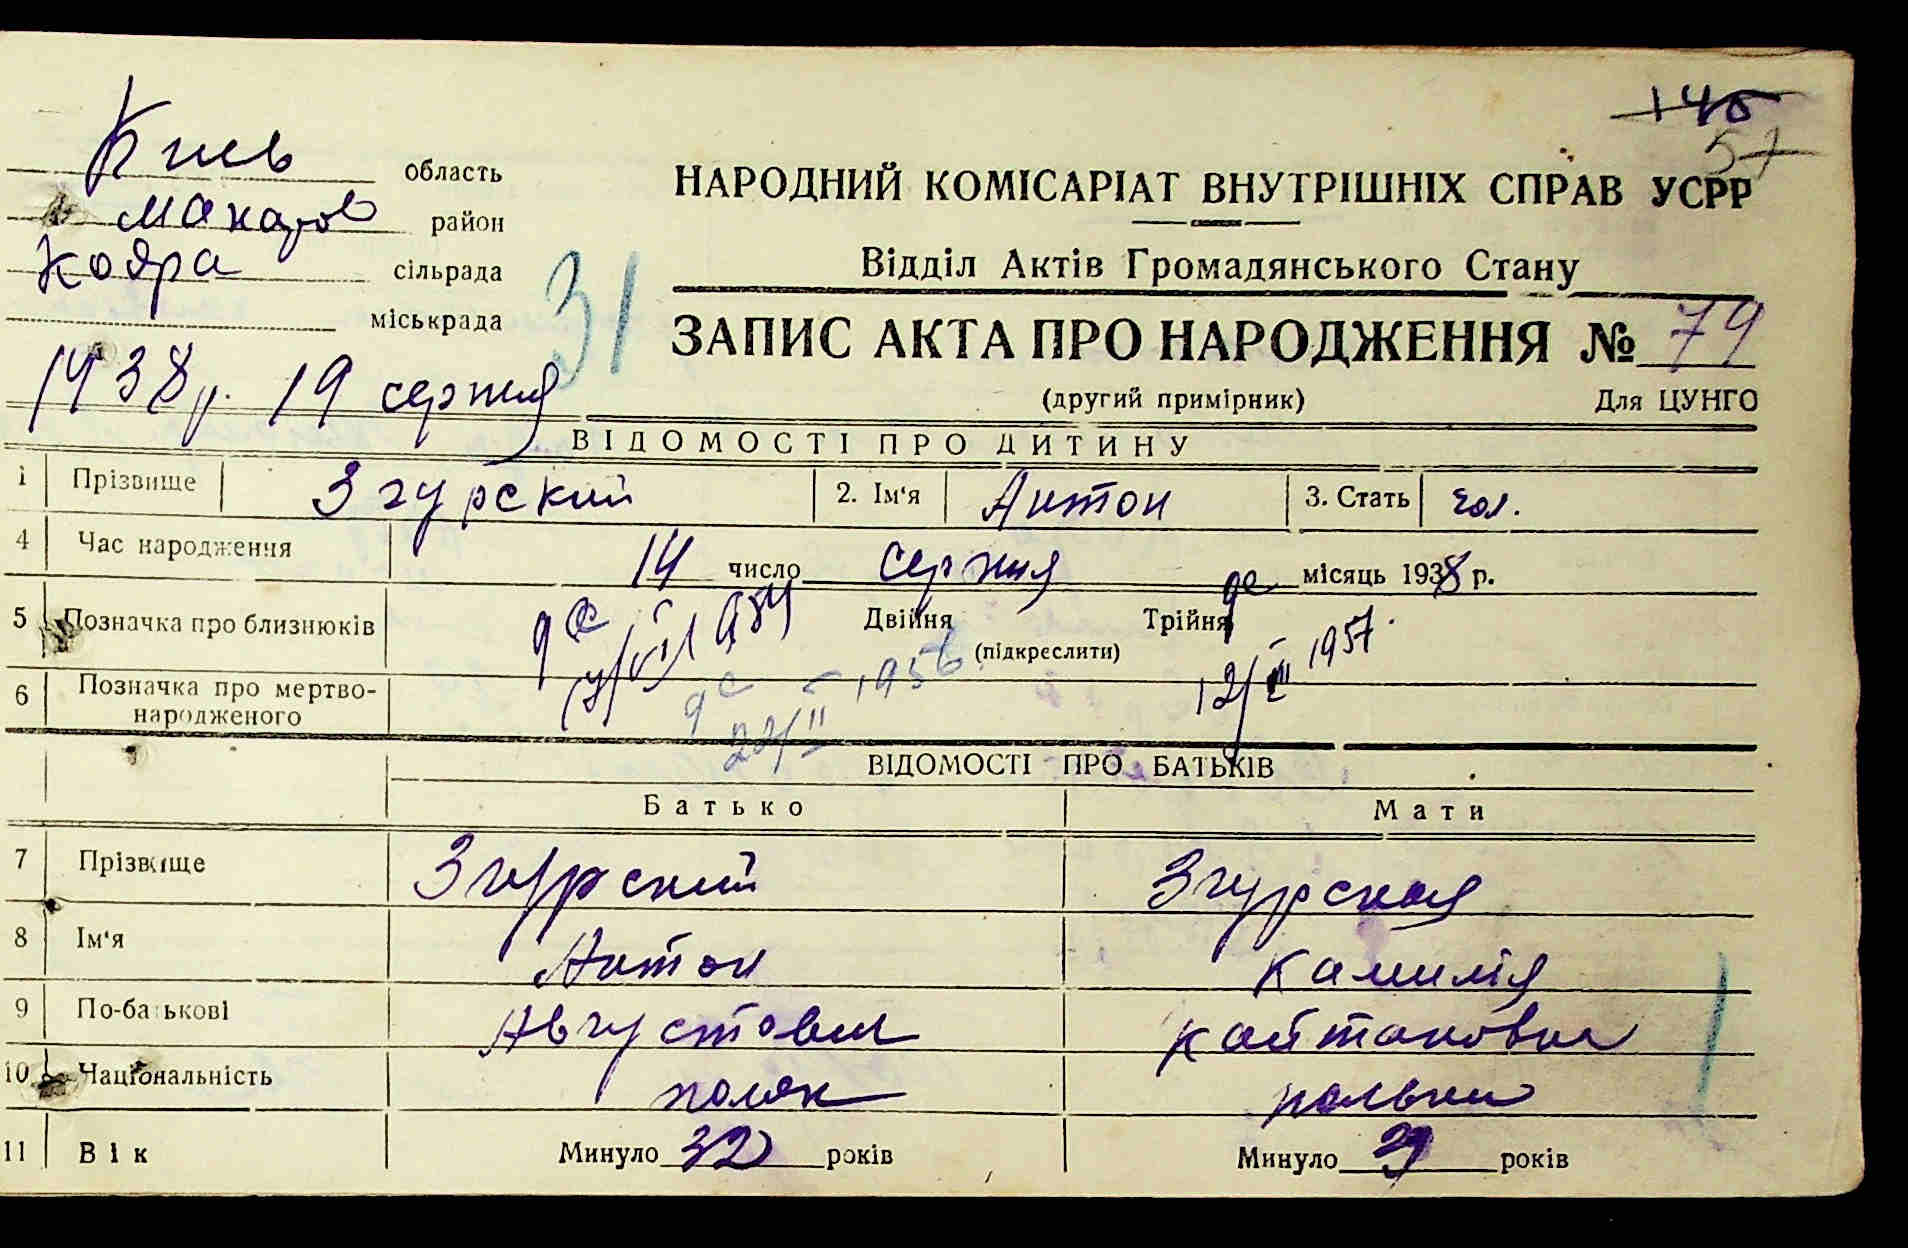 145
57
Київ область
Макарів район
сільрада
міськрада
31
НАРОДНИЙ КОМІСАРІАТ ВНУТРІШНІХ СПРАВ УСРР
Відділ Актів Громадянського Стану
ЗАПИС АКТА ПРО НАРОДЖЕННЯ № 79
(другий примірник) Для ЦУНГО
1938 р. 19 серпня
ВІДОМОСТІ ПРО ДИТИНУ
1 Прізвище Згурский 2. Ім'я Антон 3. Стать чол.
4 Час народження 14 число серпня місяць 1938 р.
5 Позначка про близнюків Двійня Трійня
(підкреслити)
9с 1954
9с 22/II 1956
9с 12/III 1957
6 Позначка про мертво-
народженого
ВІДОМОСТІ ПРО БАТЬКІВ
Батько Мати
7 Прізвище Згурский Згурская
8 Ім'я Антон Камилія
9 По-батькові Августович Кайтановна
10 Національність поляк полька
11 Вік Минуло 32 років Минуло років